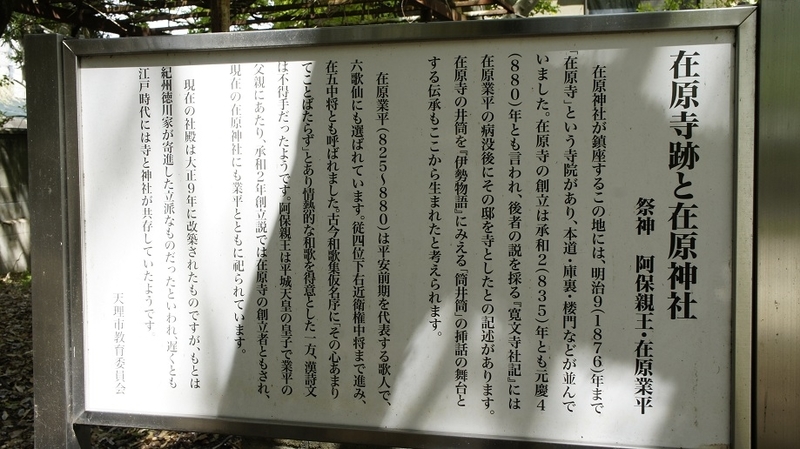 在原寺跡と在原神社
祭神　阿保親王・在原業平
在原神社が鎮座するこの地には、明治9(1876)年まで
「在原寺」という寺院があり、本道・庫裏・楼門などが並んで
いました。在原寺の創立は承和2(835)年とも元慶4
(880)年とも言われ、後者の説を採る『寛文寺社記』には
在原業平の病没後にその邸を寺としたとの記述があります。
在原寺の井筒を『伊勢物語』にみえる「筒井筒」の挿話の舞台と
する伝承もここから生まれたと考えられます。
在原業平(825～880)は平安前期を代表する歌人で、
六歌仙にも選ばれています。従四位下右近衛権中将まで進み、
在五中将とも呼ばれました。古今和歌集仮名序に「その心あまり
てことばたらず」とあり情熱的な和歌を得意とした一方、漢詩文
は不得手だったようです。阿保親王は平城天皇の皇子で業平の
父親にあたり、承和2年創立説では在原寺の創立者ともされ、
現在の在原神社にも業平とともに祀られています。
現在の社殿は大正9年に改築されたものですが、もとは
紀州徳川家が寄進した立派なものだったといわれ、遅くとも
江戸時代には寺と神社が共存していたようです。
天理市教育委員会